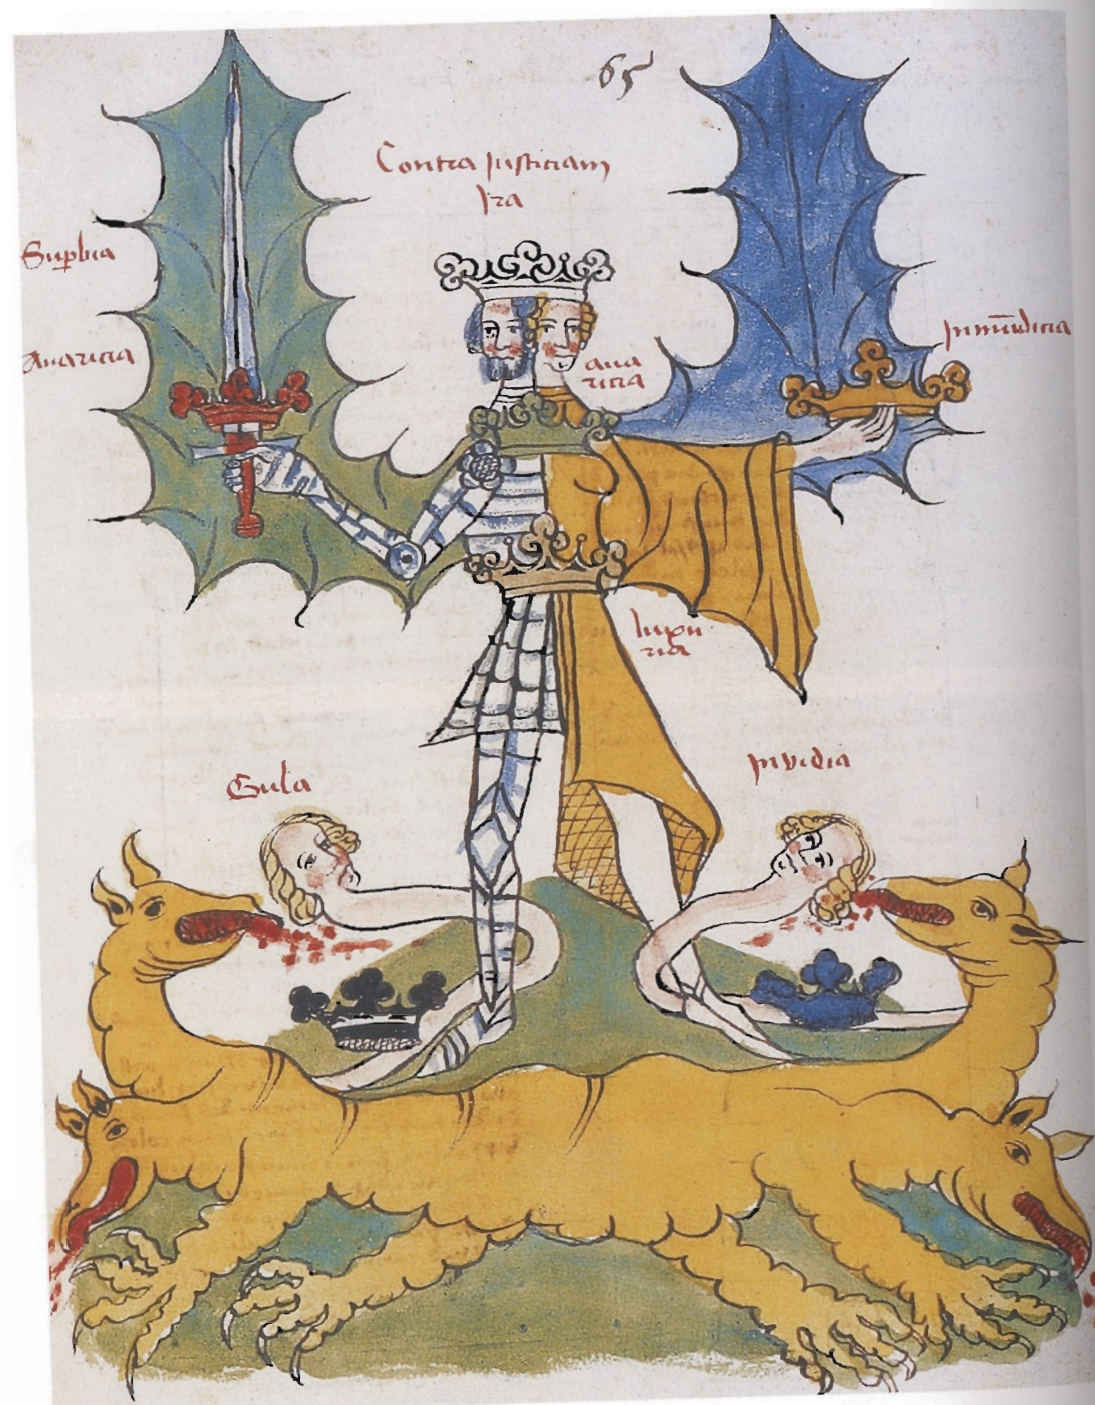 65
Contra Justiciam
Ira
Supbia
Avaricia
Inmūdicia
ava
ricia
luxu
ria
Gula
Invidia